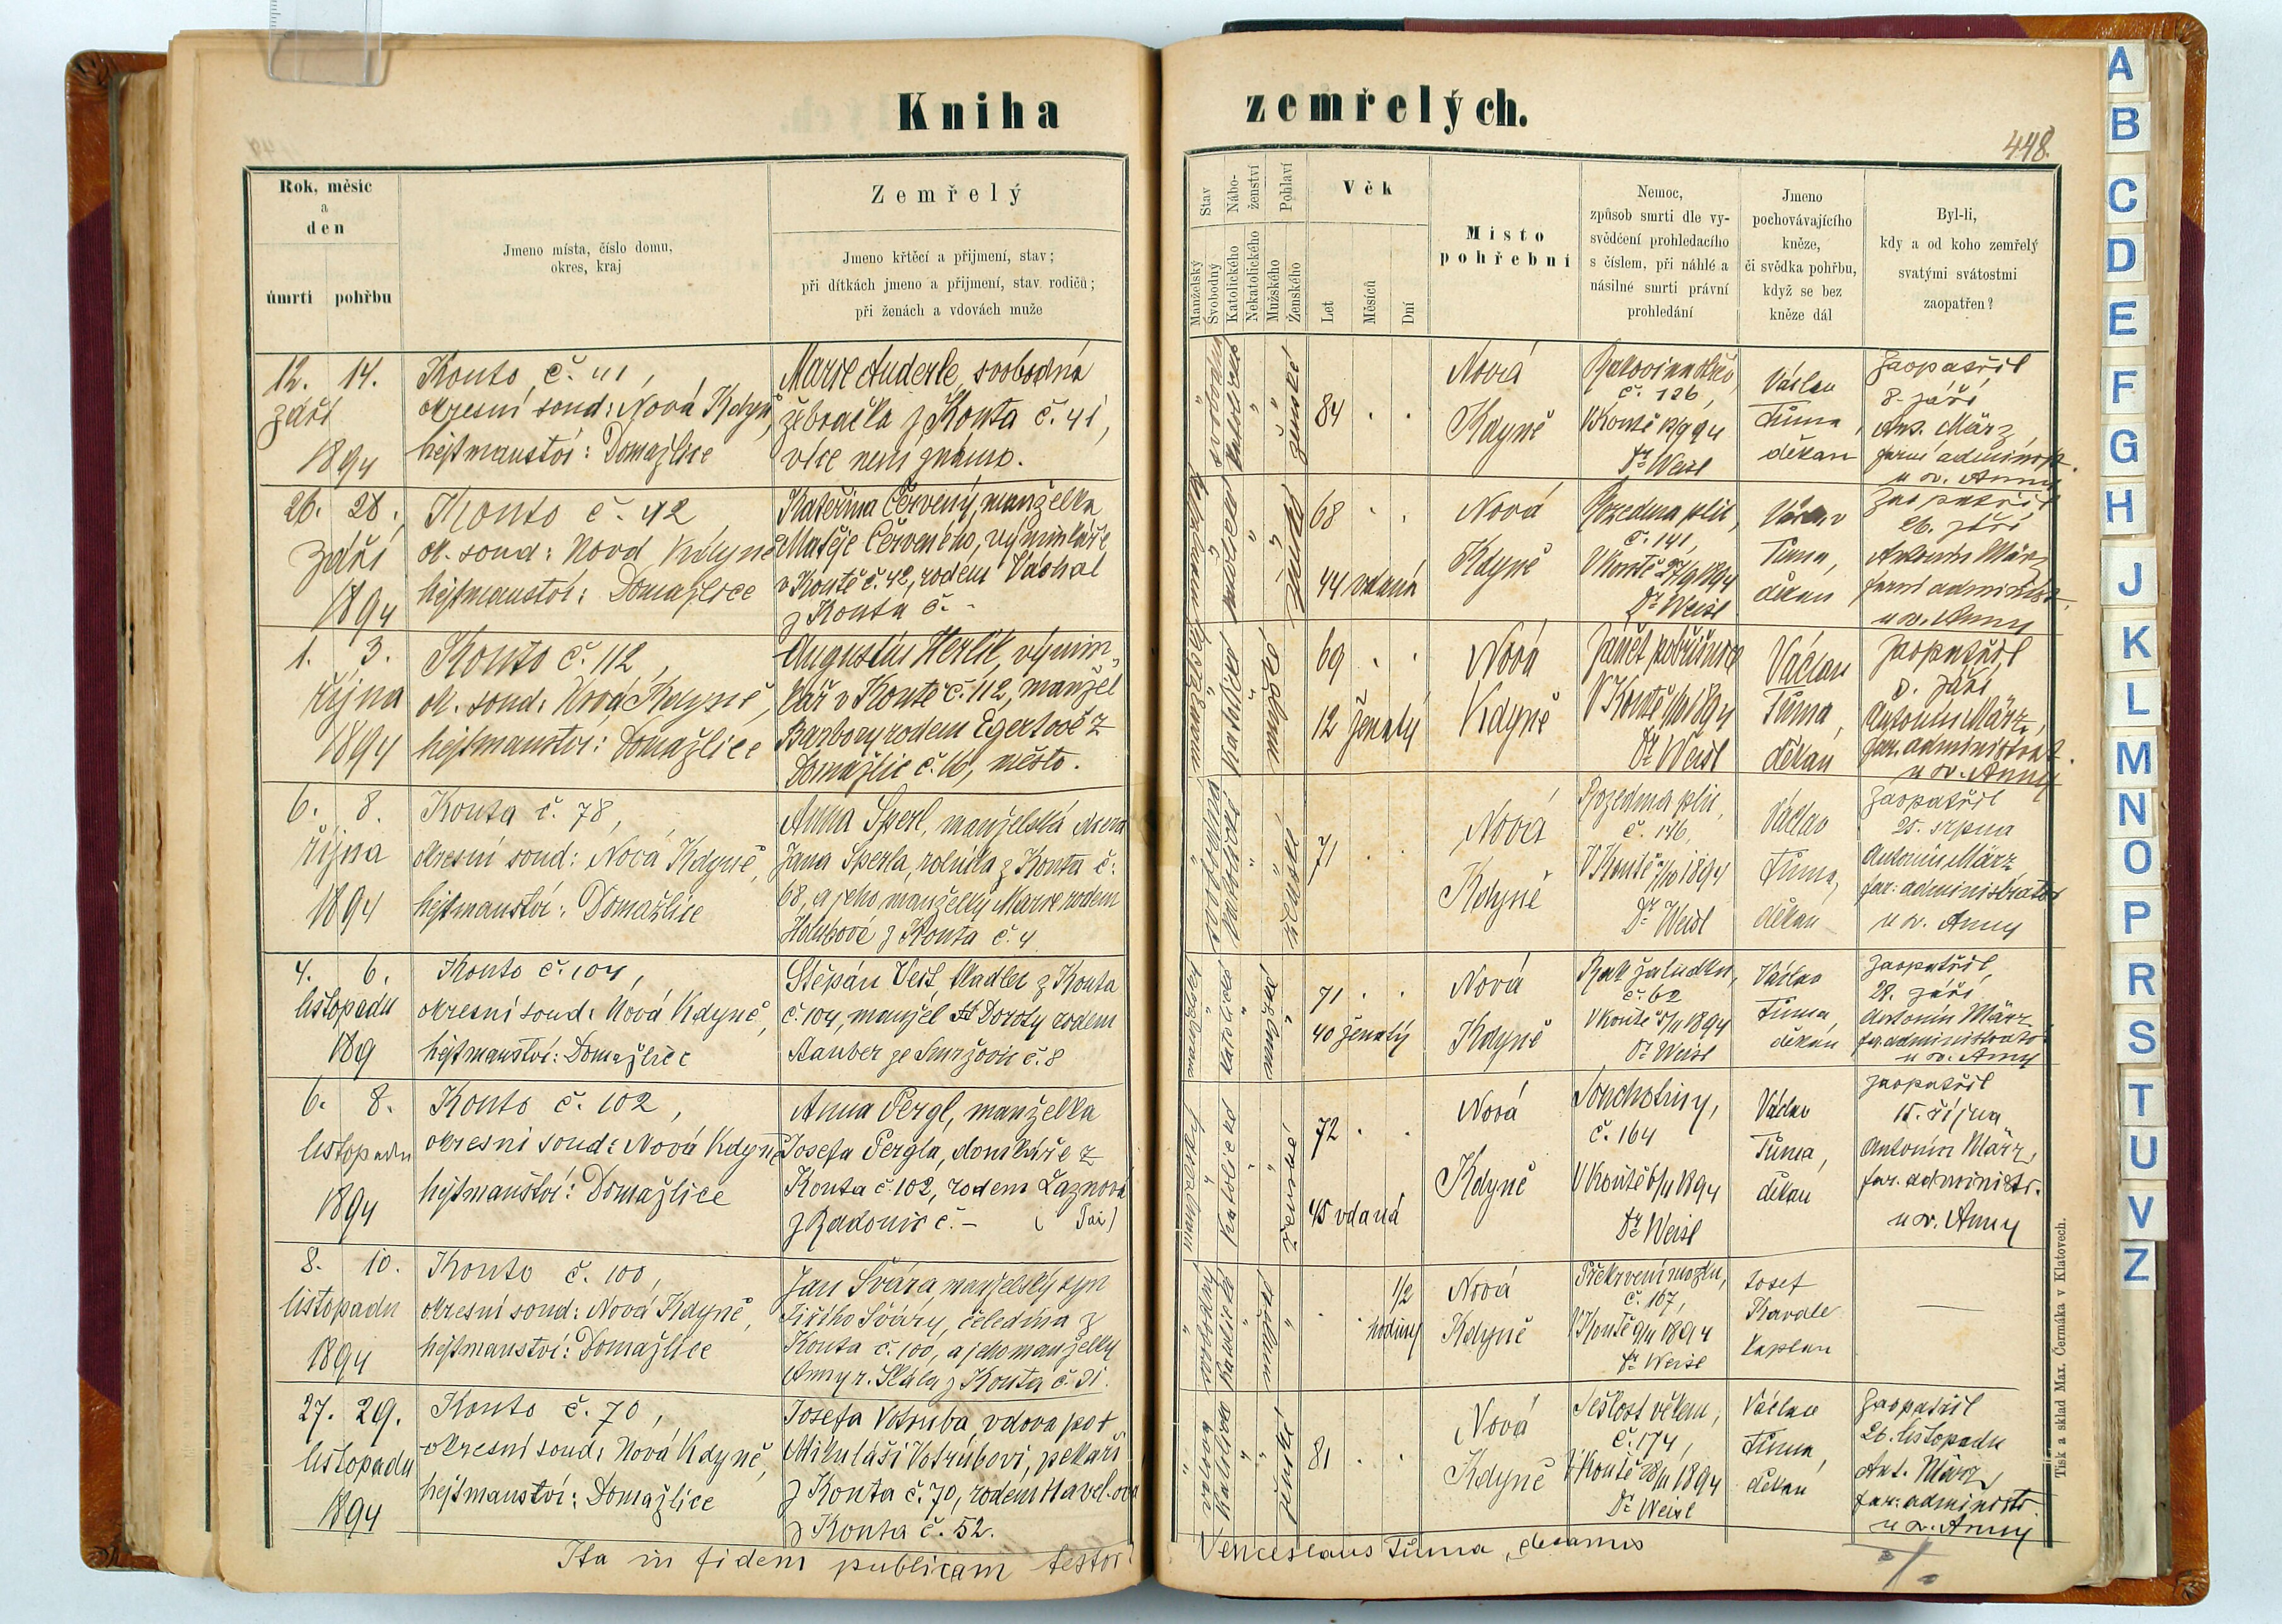 Kniha
zemřelých.
448.
Rok, měsíc
a
den
úmrtí pohřbu
Jmeno místa, číslo domu,
okres, kraj
Zemřelý
Jmeno křtěcí a přijmení, stav;
při dítkách jmeno a přijmení, stav rodičů;
při ženách a vdovách muže
Stav
Manželský
Svobodný
Nábo-
ženství
Katolického
Nekatolického
Pohlaví
Mužského
Ženského
Věk
Let
Měsíců
Dní
Místo
pohřební
Nemoc,
způsob smrti dle vy-
svědčení prohledacího
s číslem, při náhlé a
násilné smrti právní
prohledání
Jmeno
pochovávajícího
kněze,
či svědka pohřbu,
když se bez
kněze dál
Byl-li,
kdy a od koho zemřelý
svatými svátostmi
zaopatřen?
12. 14.
září
1894
Kouto č. 41,
okresní soud: Nová Kdyně,
hejtmanství: Domažlice
Marie Auderle, svobodná
žebračka z Kouta č. 41,
více není známo.
svobodná
katolické
ženské
84
Nová
Kdyně
č. 126,
V Koutě 12/9 94
Dr Weisl
Václav
Tůma,
děkan
zaopatřil
8. září
Ant. März,
farní administr.
u sv. Anny
26. 28.
září
1894
Kouto č. 42
ok. soud: Nová Kdyně
hejtmanství: Domažlice
Kateřina Červený, manželka
Matěje Červeného, výminkáře
v Koutě č. 42, rodem Váchal
z Kouta č. -
katolické
ženské
68
44 vdaná
Nová
Kdyně
Rozedma plic,
č. 141,
V Koutě 27/9 1894
Dr Weisl
Václav
Tůma,
děkan
Zaopatřil
26. září
Antonín März
farní administr.
u sv. Anny
1. 3.
října
1894
Kouto č. 112,
ok. soud: Nová Kdyně,
hejtmanství: Domažlice
Augustin Herlík, výmin-
kář v Koutě č. 112, manžel
Barbory rodem Egertové z
Domažlic č. 16, město.
katolické
69
12 ženatý
Nová
Kdyně
Zánět pobřišnice
V Koutě 1/10 1894
Dr Weisl
Václav
Tůma,
děkan
zaopatřil
8. září
Antonín März,
far. administrat.
u sv. Anny
6. 8.
října
1894
Kouta č. 78,
okresní soud: Nová Kdyně,
hejtmanství: Domažlice
Anna Sperl, manželská dcera
Jana Sperla, rolníka z Kouta č.
68, a jeho manželky Marie rodem
Holubové z Kouta č. 4
svobodná
katolické
ženské
71
Nová
Kdyně
Rozedma plic,
č. 146,
V Koutě 7/10 1894
Dr Weisl
Václav
Tůma,
děkan
zaopatřil
25. srpna
Antonín März
far: administrator
u sv. Anny
4. 6.
listopadu
189
Kouto č. 104,
okresní soud: Nová Kdyně,
hejtmanství: Domažlice
Štěpán Veit, sladler z Kouta
č. 104, manžel Doroty rodem
Tauber ze Smržovic č. 8
katolické
71
40 ženatý
Nová
Kdyně
Rak žaludku,
č. 62
V Koutě 5/11 1894
Dr Weisl
Václav
Tůma,
děkan
zaopatřil,
28. září
Antonín März
fa. administrator
u sv. Anny
6. 8.
listopadu
1894
Kouto č. 102,
okresní soud: Nová Kdyně
hejtmanství: Domažlice
Anna Pergl, manželka
Josefa Pergla, domkáře z
Kouta č. 102, rodem Laznová
z Radonic č. - ( Tai)
katolické
ženské
72
45 vdaná
Nová
Kdyně
Souchotiny,
č. 164
V Koutě 6/11 1894
Dr Weisl
Václav
Tůma,
děkan
zaopatřil
15. října
Antonín März,
far. administr.
u sv. Anny
8. 10.
listopadu
1894
Kouto č. 100,
okresní soud: Nová Kdyně,
hejtmanství: Domažlice
Jan Švára, manželský syn
Jiřího Šváry, čeledína z
Kouta č. 100, a jeho manželky
Anny r. Skála z Kouta č. 31.
svobodný
katolické
1/2
hodiny
Nová
Kdyně
Překrvení mozku,
č. 167,
V Koutě 9/11 1894
Dr Weisl
Josef
Kavale
kaplan
27. 29.
listopadu
1894
Kouto č. 70,
okresní soud: Nová Kdyně,
hejtmanství: Domažlice
Josefa Votruba, vdova po †
Mikuláši Votrubovi, pekaři
z Kouta č. 70, rodem Havel-ova
z Kouta č. 52.
vdova
katolické
ženské
81
Nová
Kdyně
Sešlost věkem,
č. 174,
V Koutě 28/11 1894
Dr Weisl
Václav
Tůma,
děkan
Zaopatřil
26. listopadu
Ant. März,
far: administr.
u sv. Anny
Ita in fidem publicam testor
Venceslaus Tůma, decanus
Tisk a sklad Max. Čermáka v Klatovech.
A
B
C
D
E
F
G
H
J
K
L
M
N
O
P
R
S
T
U
V
Z